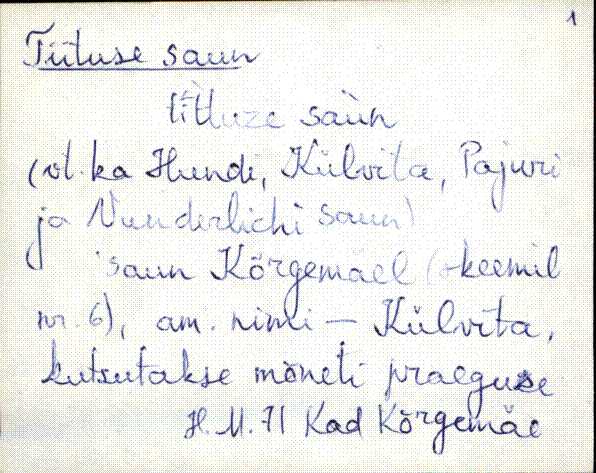 1
Tiituse saun
tìttuze saùn
(vt. ka Hundi, Külvita, Pajuri
ja Vunderlichi saun)
saun Kõrgemäel (skeemil
nr. 6), am. nimi — Külvita,
kutsutakse mõneti praeguse
H. M. 71 Kad Kõrgemäe